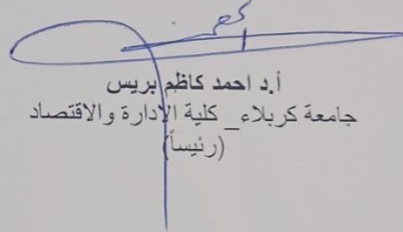 أ.د احمد كاظم بريس
جامعة كربلاء_ كلية الإدارة والاقتصاد
(رئيساً)